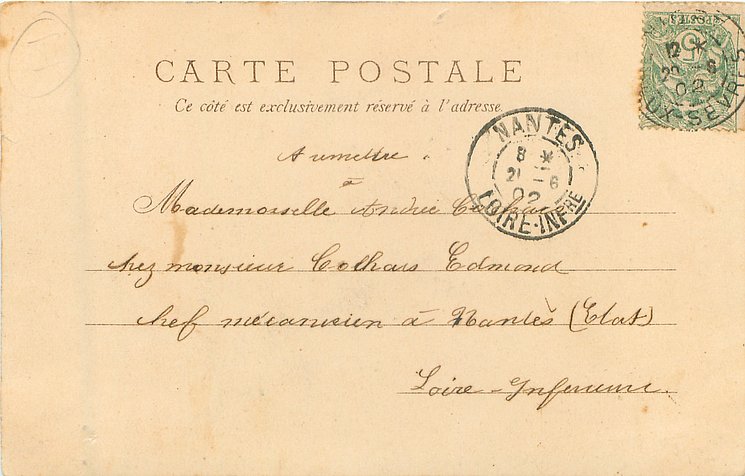 POSTES
5
12 *
20 - 6
02
UX-SEVRES
CARTE POSTALE
Ce côté est exclusivement réservé à l'adresse.
NANTES
8 *
21 - 6
02
LOIRE-INFRE
A remettre
à
Mademoiselle Andrée
chez monsieur Colhars Edmond
chef mécanicien à Nantès (Etat)
Loire-Inferieure.